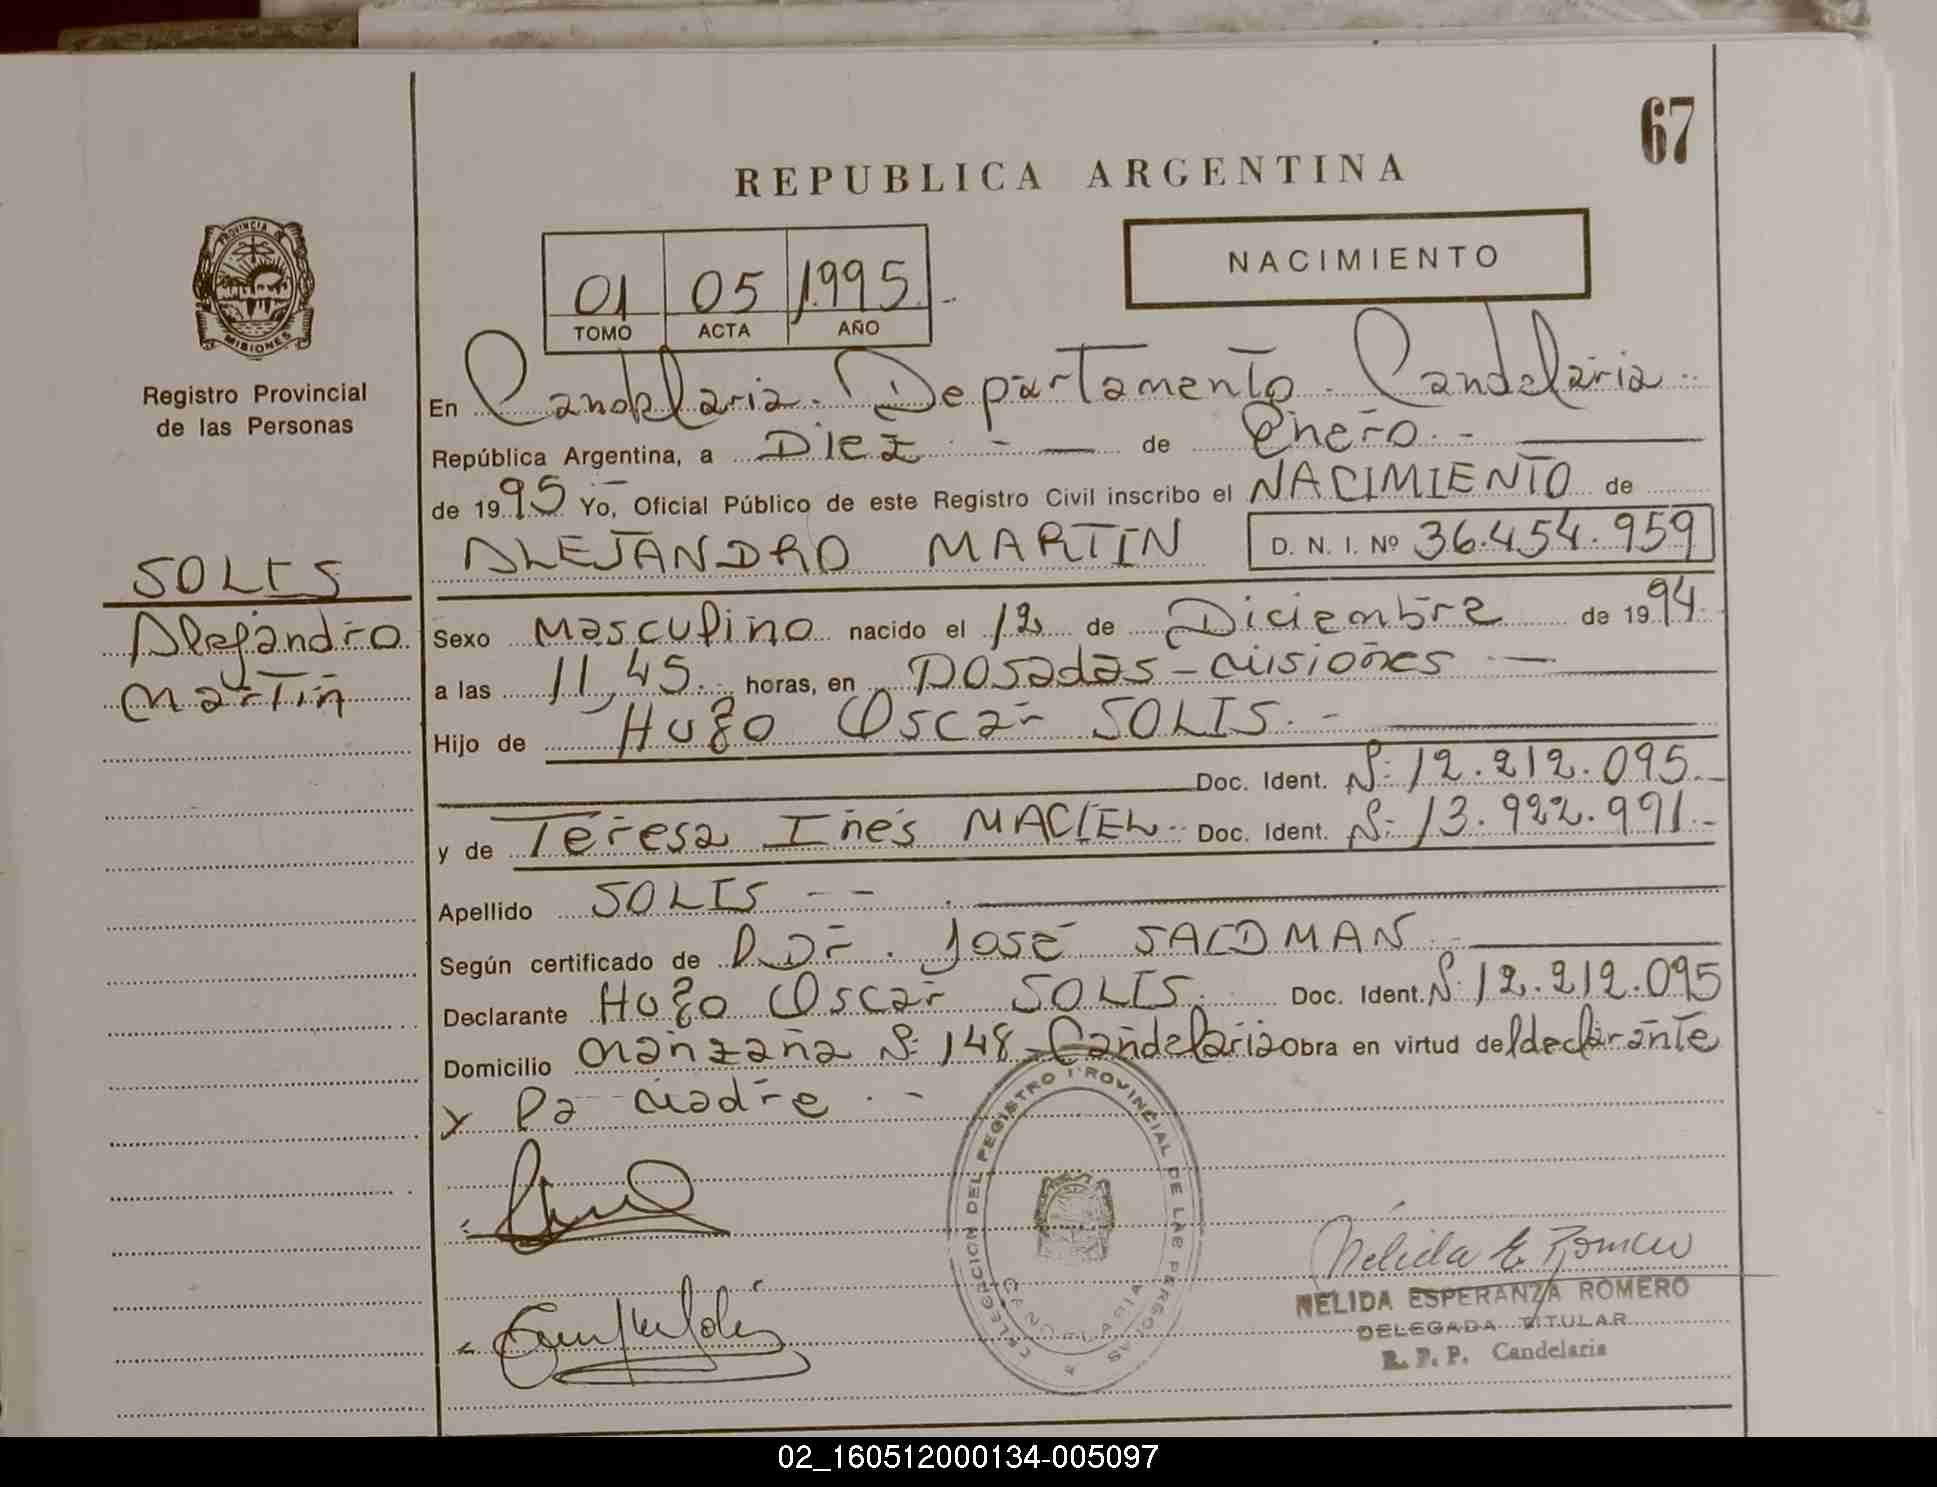 67
REPUBLICA ARGENTINA
NACIMIENTO
01 05 1995
TOMO ACTA AÑO
PROVINCIA DE MISIONES
Registro Provincial
de las Personas
SOLIS
Alejandro
Martin
En Candelaria. Departamento. Candelaria
República Argentina, a DIEZ de Enero
de 1995 Yo, Oficial Público de este Registro Civil inscribo el NACIMIENTO de
ALEJANDRO MARTIN D. N. I. Nº 36.454.959
Sexo Masculino nacido el 12 de Diciembre de 1994
a las 11,45 horas, en Posadas - Misiones
Hijo de Hugo Oscar SOLIS
Doc. Ident. Nº 12.212.095
y de Teresa Inés MACIEL Doc. Ident. Nº 13.922.991
Apellido SOLIS
Según certificado de Dr. José
Declarante Hugo Oscar SOLIS Doc. Ident. Nº 12.212.095
Domicilio Manzana Nº 148 - Candelaria Obra en virtud del declarante
y la madre
DELEGACION DEL REGISTRO PROVINCIAL DE LAS PERSONAS
CANDELARIA
Nélida E Romero
NELIDA ESPERANZA ROMERO
DELEGADA TITULAR
R. P. P. Candelaria
02_160512000134-005097